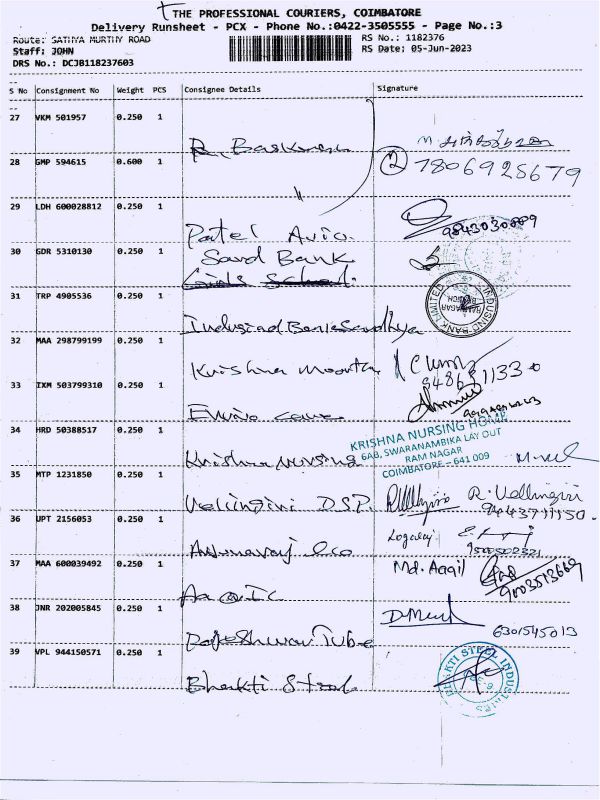 THE PROFESSIONAL COURIERS, COIMBATORE
Delivery Runsheet - PCX - Phone No.:0422-3505555 - Page No.:3
Route: SATHYA MURTHY ROAD
RS No.: 1182376
Staff: JOHN
RS Date: 05-Jun-2023
DRS No.: DCJB118237603
S No Consignment No Weight PCS Consignee Details Signature
27 VKM 501957 0.250 1
R. Baskaran
28 GMP 594615 0.600 1
② 7806925679
29 LDH 600028812 0.250 1
Patel Avic.
9843030889
30 GDR 5310130 0.250 1
Savd Bank
Girls School.
31 TRP 4905536 0.250 1
INDUSIND BANK LIMITED
RAMNAGAR BRANCH
Indusind Bank Sandhya
32 MAA 298799199 0.250 1
Krishna Moorthy
33 IXM 503799310 0.250 1
34 HRD 50388517 0.250 1
KRISHNA NURSING HOME
6AB, SWARANAMBIKA LAY OUT
RAM NAGAR
COIMBATORE - 641 009
Krishna Nursing
35 MTP 1231850 0.250 1
Vellingiri DSP.
R. Vellingiri
9443711150.
36 UPT 2156053 0.250 1
Logaraj
9500502321
37 MAA 600039492 0.250 1
Md. Aaqil
9003513669
38 JNR 202005845 0.250 1
Rajeshwari Tube
6301545013
39 VPL 944150571 0.250 1
BHAKTI STEEL INDUSTRIES
Bhakti Steel